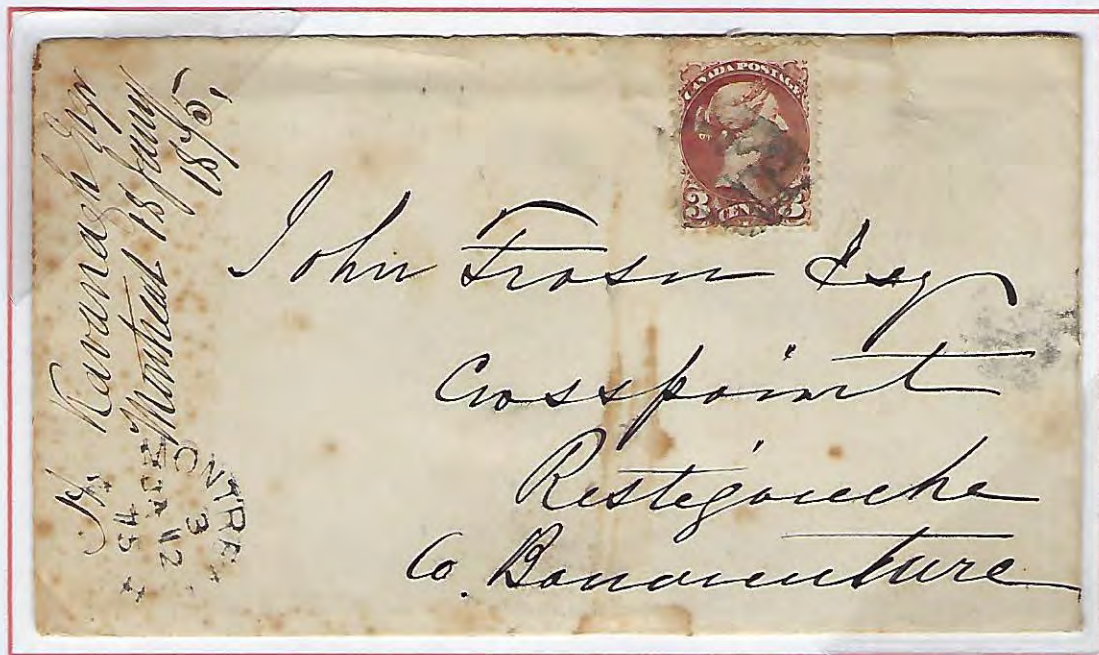 Kavanagh
Montreal 13 Jany
1875
CANADA POSTAGE
3 CENTS 3
John Fraser Esq
Crosspoint
Restigouche
Co. Bonaventure